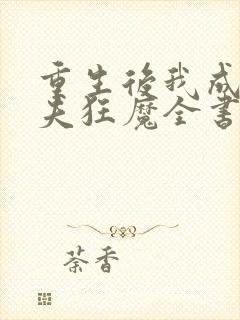 重生後我成
夫狂魔全書
荼香